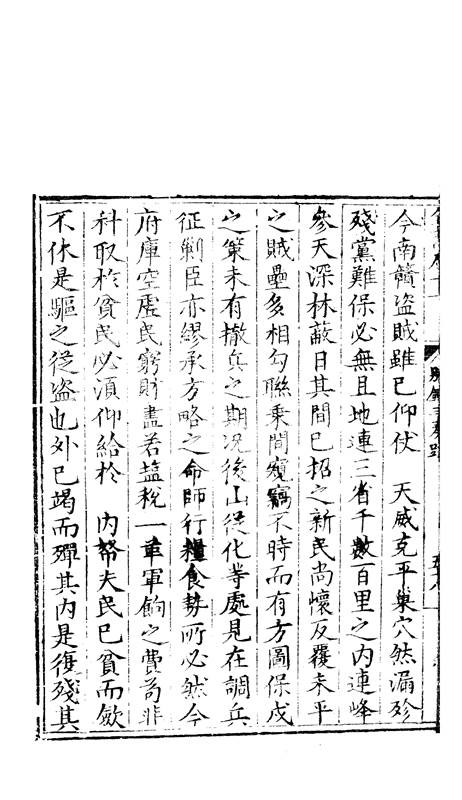 今南贛盗賊雖已仰仗　天威克平巢穴然漏殄
殘黨難保必無且地連三省千數百里之内連峰
參天深林蔽日其間已招之新民尚懷反覆未平
之賊壘多相勾聯乘間窺竊不時而有方圖保戍
之策未有撤兵之期况後山從化等處見在調兵
征剿臣亦繆承方略之命師行糧食勢所必然今
府庫空虚民窮財盡若盐稅一革軍餉之費茍非
科取於貧民必須仰給於　内帑夫民已貧而歛
不休是驅之從盗也外已竭而殫其内是復殘其